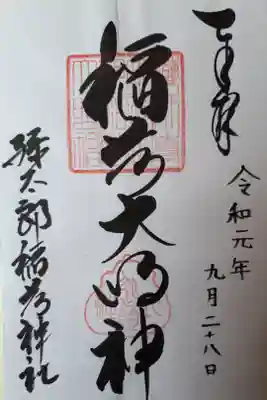 奉拝
令和元年
九月二十八日
稲荷大明神
弥太郎稲荷神社